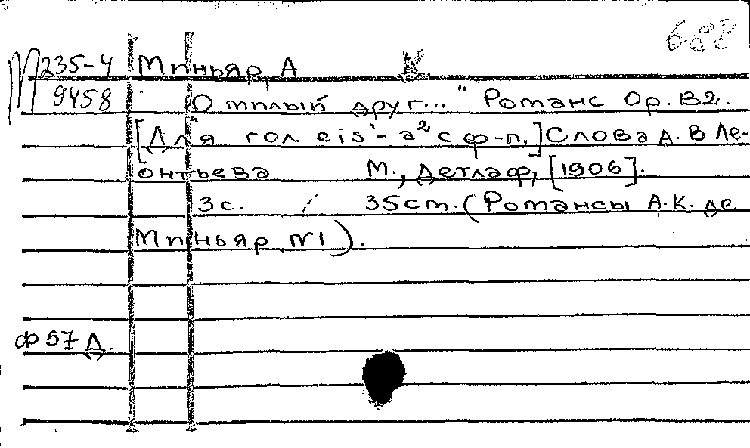 688
М 235-4 Миньяр А К
9458 "О милый друг..." Романс Ор. 32.
[Для гол eis'-a² с ф-п.] Слова А. В Ле-
онтьева М., Детлаф, [1906].
3 с. 35 cm. (Романсы А. К. де
Миньяр N1).
ф 57 Д.